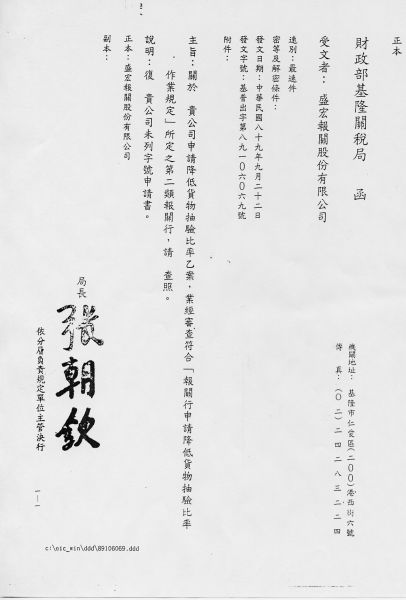 正本
財政部基隆關稅局　函
機關地址：基隆市仁愛區(二００)港西街六號
傳　真：(０二)二四二八三二二四
受文者：盛宏報關股份有限公司
速別：最速件
密等及解密條件：
發文日期：中華民國八十九年九月二十二日
發文字號：基普出字第八九一０六０六九號
附件：
主旨：關於　貴公司申請降低貨物抽驗比率乙案，業經審查符合「報關行申請降低貨物抽驗比率
作業規定」所定之第二類報關行，請　查照。
說明：復　貴公司未列字號申請書。
正本：盛宏報關股份有限公司
副本：
局長 張朝欽
依分層負責規定單位主管決行
1-1
c:\eic_win\ddd\89106069.ddd